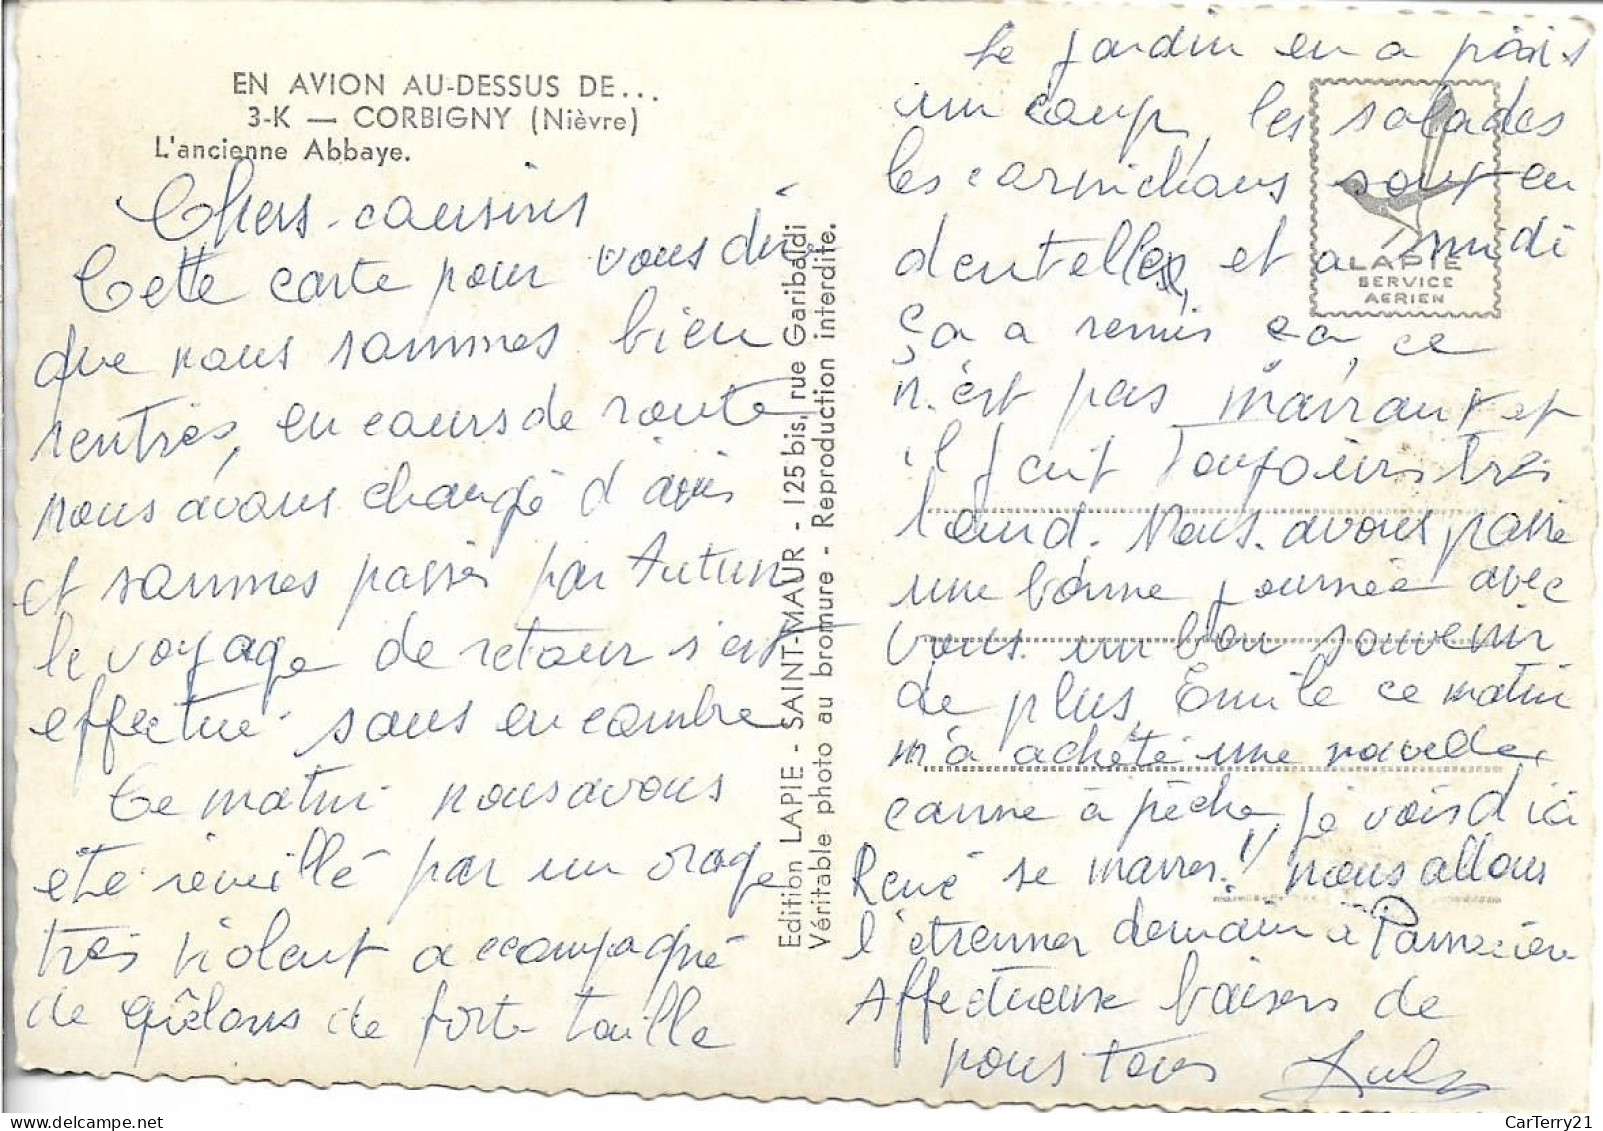 EN AVION AU-DESSUS DE...
3-K — CORBIGNY (Nièvre)
L'ancienne Abbaye.
Chers cousins
Cette carte pour vous dire
que nous sommes bien
rentrés, en cours de route
nous avons changé d'avis
et sommes passés par Autun
le voyage de retour s'est
effectué sans encombre
Ce matin nous avons
été réveillé par un orage
très violent accompagné
de grêlons de forte taille
Edition LAPIE - SAINT-MAUR - 125 bis, rue Garibaldi
Véritable photo au bromure - Reproduction interdite.
Le jardin en a pris
un coup, les salades
les cornichons sont en
dentelles, et a midi
ça a remis ça, ce
n'est pas marrant et
il fait toujours très
lourd. Nous avons passé
une bonne journée avec
vous un bon souvenir
de plus, Emile ce matin
m'a acheté une nouvelle
canne à pêche, je vois d'ici
René se marrer!! nous allons
l'étrenner demain à
Affectueux baisers de
nous tous
LAPIE
SERVICE
AERIEN
CarTerry21